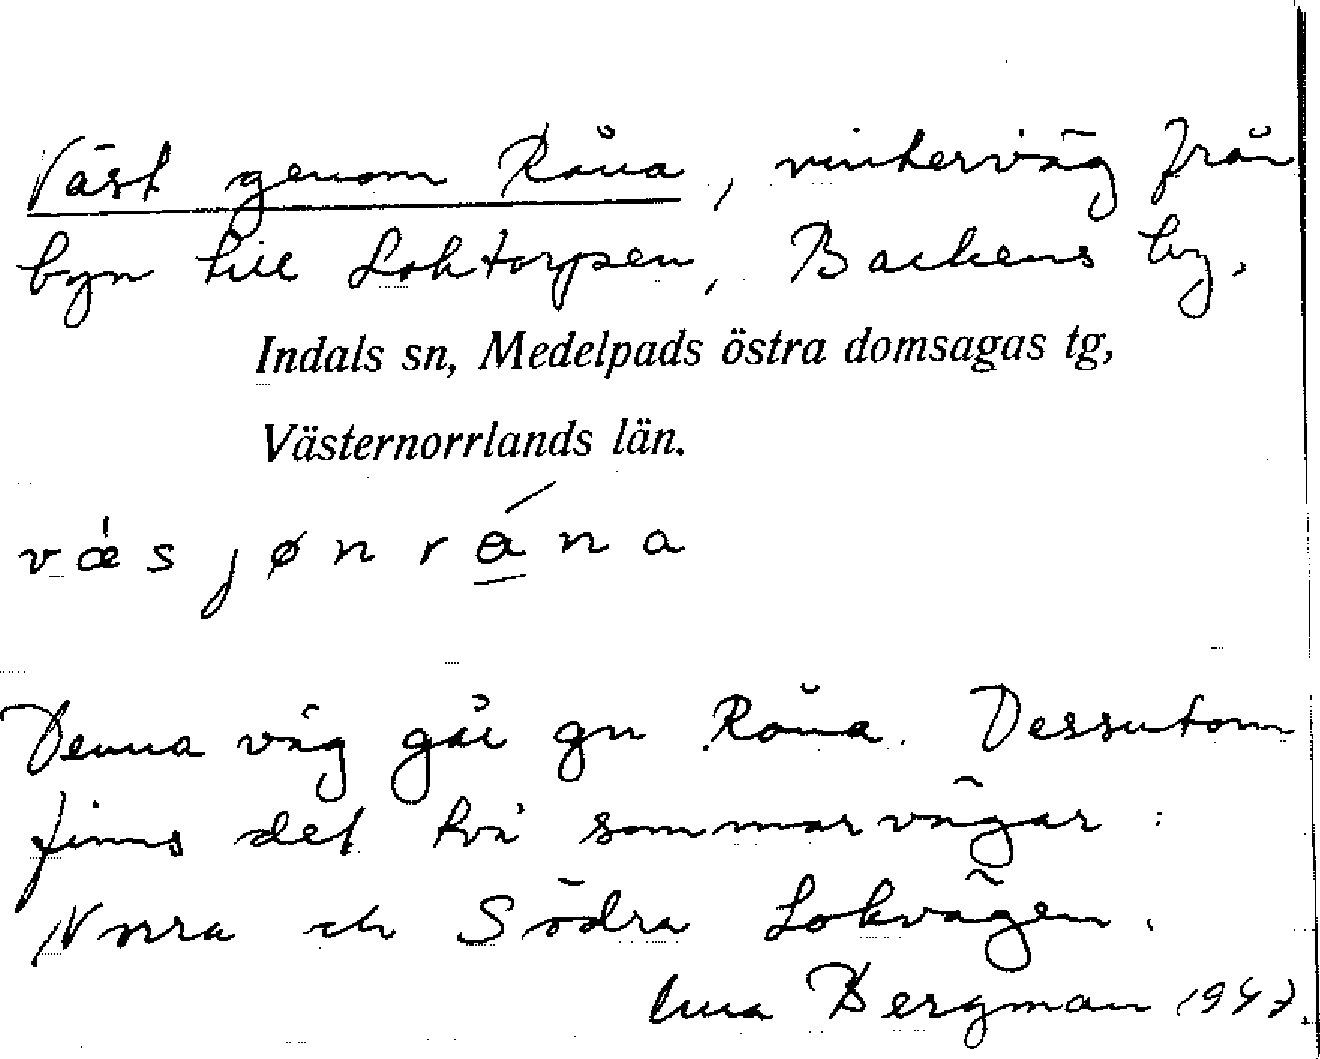 Väst genom Råna, vinterväg från
byn till Loktorpen, Backens by.
Indals sn, Medelpads östra domsagas tg,
Västernorrlands län.
væ̍sjønrána
Denna väg går gn Råna. Dessutom
finns det två sommarvägar:
Norra och Södra Lokvägen.
Bergman 1947.